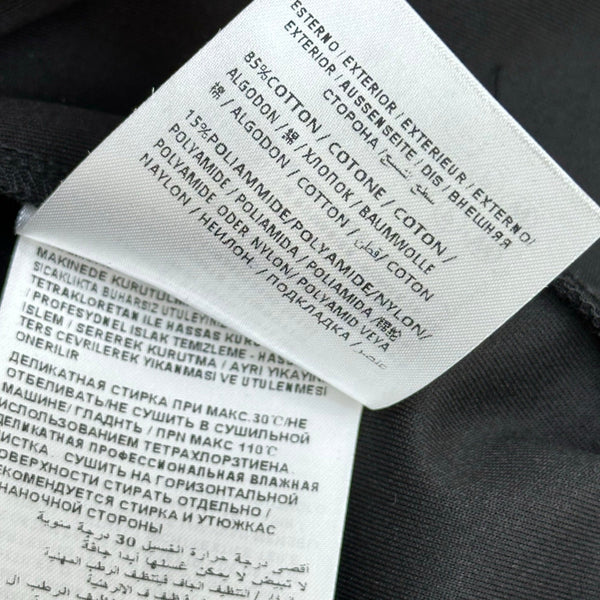 ESTERNO / EXTERIOR / EXTERIEUR / EXTERNO/
EXTERIOR / AUSSENSEITE / DIS / ВНЕШНЯЯ
СТОРОНА /
85%COTTON / COTONE / COTON/
ALGODON / 綿 / ХЛОПОК / BAUMWOLLE
棉 / ALGODON / COTTON / قطن / COTON
15%POLIAMMIDE/POLYAMIDE/NYLON/
POLYAMIDE / POLIAMIDA / POLIAMIDA / 锦纶/
POLYAMIDE ODER NYLON/ POLYAMID VEYA
NAYLON / НЕЙЛОН. / ПОДКЛАДКА /
MAKINEDE KURUTULMA
SICAKLIKTA BUHARSIZ UTULEYIN
TETRAKLORETAN ILE HASSAS KURU
/ PROFESYONDEL ISLAK TEMIZLEME - HASS
ISLEM / SEREREK KURUTMA / AYRI YIKAYIN
TERS CEVRILEREK YIKANMASI VE UTULENMESI
ONERILIR
ДЕЛИКАТНАЯ СТИРКА ПРИ МАКС.30℃/НЕ
ОТБЕЛИВАТЬ/НЕ СУШИТЬ В СУШИЛЬНОЙ
МАШИНЕ/ ГЛАДНТЬ / ПРN МАКС 110℃
ИСПОЛЬЗОВАНИЕМ ТЕТРАХЛОРЭТИЕНА
ДЕЛИКАТНАЯ ПРОФЕССИОНАЛЬНАЯ ВЛАЖНАЯ
ЧИСТКА СУШИТЬ НА ГОРИЗОНТАЛЬНОЙ
ПОВЕРХНОСТИ СТИРАТЬ ОТДЕЛЬНО /
РЕКОМЕНДУЕТСЯ СТИРКА И УТЮЖКАС
ИЗНАНОЧНОЙ СТОРОНЫ
أقصى درجة حرارة الغسيل 30 درجة مئوية
لا تبيض لا يمكن غسلها أبدا جافة